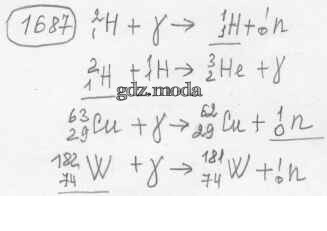 1687 ²₁H + γ → ¹₁H + ¹₀n
²₁H + ¹₁H → ³₂He + γ
gdz.moda
⁶³₂₉Cu + γ → ⁶²₂₉Cu + ¹₀n
¹⁸²₇₄W + γ → ¹⁸¹₇₄W + ¹₀n